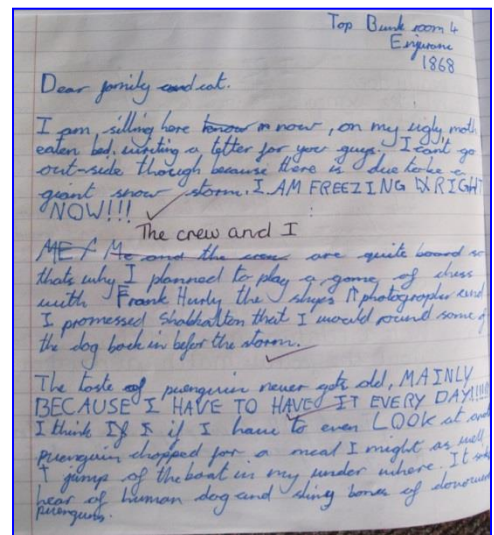 Top Bunk room 4
1868
Dear family and cat.
I am, sitting here know in now, on my ugly moth
eaten bed, writing a letter for you guys. I can't go
out-side though because there is due to be a
giant snow storm. I AM FREEZING RIGHT
NOW!!!
The crew and I
ME / Me and the crew are quite board so
thats why I planned to play a game of chess
with Frank Hurly the ships photographer and
I promessed that I would round some of
the dog back in befor the storm.
The taste of puenguin never gets old, MAINLY
BECAUSE I HAVE TO HAVE IT EVERY DAY!!!!
I think If I if I have to even LOOK at and
puenguin chopped for a meal I might as well
jump of the boat in my under where. It
hear of human dog and bones of
puenguins.